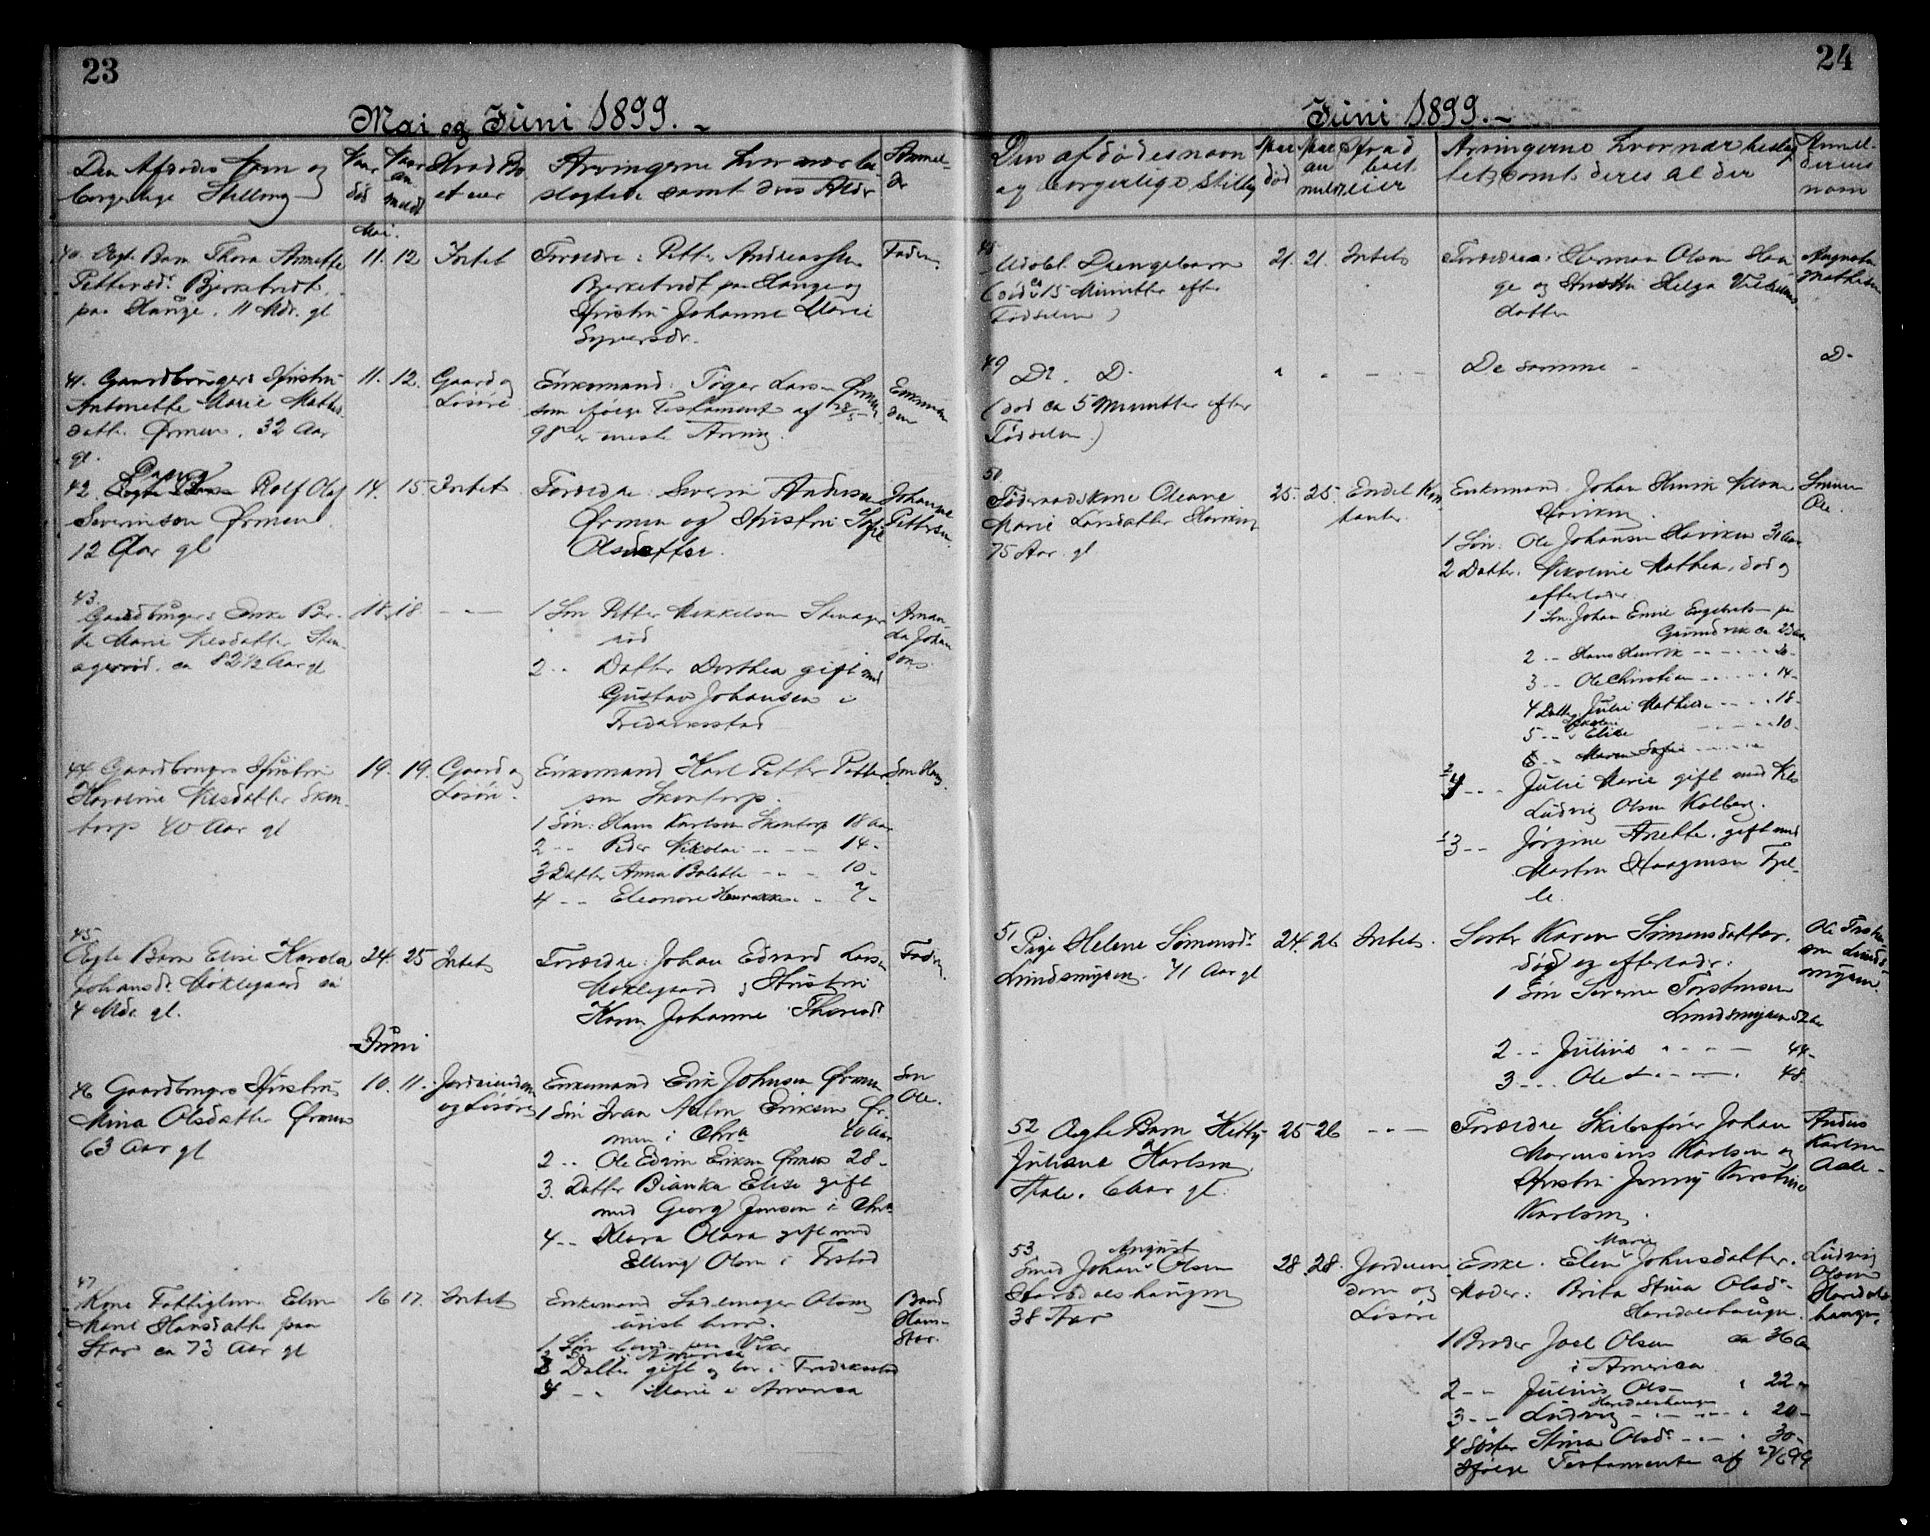 23
Mai og Juni 1899.
Den Afdødes Navn og
borgerlige Stilling
Naar
død
Naar
an
meldt
Hvad Bo
et eier
Arvingerne hvor nær be
slægtede samt deres Alder
Anmel-
der
Mai.
40. Ægte Barn Thora Annette
Pettersdr. Bjerketvedt
paa Hauge. 11 Mdr. gl
11. 12 Intet
Forældre: Petter Andreassen
Bjerketvedt paa Hauge og
Hustru Johanne Marie
Syversdr.
Faderen
41. Gaardbrugers Hustru
Antonette Marie Mathis
datter Ørmen. 32 Aar
gl.
11. 12. Gaard og
Løsøre
Enkemand: Tøger Larsen Ørmen
som ifølge Testament af
98 er eneste Arving.
Enkeman
den
42. Rolf Olaf
Severinsen Ørmen
12 Aar gl
14. 15. Intet
Forældre: Severin Andersen
Ørmen og Hustru Sofie
Olsdatter.
Johanne
Pettersen.
43.
Gaardbrugers Enke Ber-
te Marie Nilsdatter Sten
agerrød. ca 82 1/2 Aar gl
18. 18 - -
1 Søn Petter Mikkelsen Stenager
rød
2 " Datter Dorthea gift med
Gustav Johansen i
Fredriksstad
Aman
da Johan
sens
44. Gaardbrugers Hustru
Karoline Nilsdatter Skon-
torp 40 Aar gl
19. 19. Gaard og
Løsøre.
Enkemand Karl Petter Petter
sen Skontorp.
1 Søn: Hans Karlsen Skontorp 18 Aar
2 - - Peder Nikolai - - - 14 -
3 Datter Anna Bolette - - - 10 -
4 - - Eleonore Henrikke - - 7 -
Søn Hans.
45.
Ægte Barn Elise Karola
Johansdr. Moklegaard ca
4 Mdr. gl.
24. 25 Intet
Forældre: Johan Edvard Larsen
Moklegaard & Hustru
Karen Johanne Thorsdr
Faderen.
Juni
46 Gaardbrugers Hustru
Mina Olsdatter Ørmen
63 Aar gl
10. 11. Jordeiendom
og Løsøre
Enkemand Erik Johnsen Ørmen
1 Søn Ivan Eriksen Ør-
men i Chra 40 Aar
2 " Ole Edvin Eriksen Ørmen 28 -
3. Datter Bianka Elise gift
med Georg Jensen i Chra
4 - - Klara Olava gift med
Elling Olsen i Frstad
Søn
Ole.
47
Kone Fattiglem Elen
Marie Hansdatter paa
Stor ca 73 Aar gl
16 17. Intet
Enkemand Sadelmager Olsen
uvist hvor.
1 Søn
2 i Amerika
3 Datter gift og bor i Fredriksstad
4 - - Marie i Amerika
Hans-
Stor.
24
Juni 1899.
Den afdødes navn
og borgerlige Stilling
Naar
død
Naar
an
meldt
Hvad
boet
eier
Arvingerne hvor nær beslæg
tet, samt deres Alder
Anmel-
derens
navn
48
Udøbt Drengebarn
(død ca 15 Minutter efter
Fødselen)
21. 21. Intet
Forældre: Herman Olsen Hau
ge og Hustru Helga Vilhelms
datter
Mathisen
49
Do. Do
(død ca 5 Minutter efter
Fødselen.)
" " - -
De samme -
Do -
50
Føderaadskone Oleane
Marie Larsdatter Haviken
75 Aar gl
25. 25. Endel Kon
tanter.
Enkemand Johan Henrik Nilsen
Haviken.
1 Søn: Ole Johansen Haviken 31 Aar
2 Datter. Nikoline Mathea, død og
efterlader
1 Søn: Johan Emil Engebretsen paa
Grundvik ca 23 Aar
2 - - Hans Henrik - - - -
3 - - Ole Christian - - - - 14 -
4 Datter Julie Mathilde - - - 18 -
5 - - Nikoline Elise - - - - 10 -
6 - - Maren Sofie - - - -
Julie Marie gift med Nils
Ludvig Olsen Kolberg.
3 - - Jørgine Anette. gift med
Martin Haagensen Fjel-
le.
Sønnen
Ole.
51
Pige Helene Simensdr
Lundsmyren. 71 Aar gl
24. 26 Intet.
Søster Karen Simensdatter.
død og efterlader:
1 Søn Severin Torstensen
Lundsmyren 52 Aar
2 - - Julius - - - 44 -
3 - - Ole - - - 48
Ole Torsten
sen Lunds-
myren.
52 Ægte Barn Kitty
Juliane Karlsen
6 Aar gl.
25 26 - -
Forældre Skibsfører Johan
Marensius Karlsen og
Hustru Jenny Kristine
Karlsen.
Andreas
Karlsen
Aale -
53
August
Smed Johan Olsen
Haredalshaugen
38 Aar
28. 28. Jordeien
dom og
Løsøre
Marie
Enke. Eline Johnsdatter.
Moder: Brita Stina Olsdr
Haredalshaugen.
1 Broder Joel Olsen ca 36 Aar
i America
2 - - Julius Ols- " 22 -
Haredalshaugen
3 - - Ludvig - - - " 20 -
4 Søster Stina Olsdr - - " 30 -
Ifølge Testamente af 27/6 99
Ludvig
Olsen
Haredals
haugen.